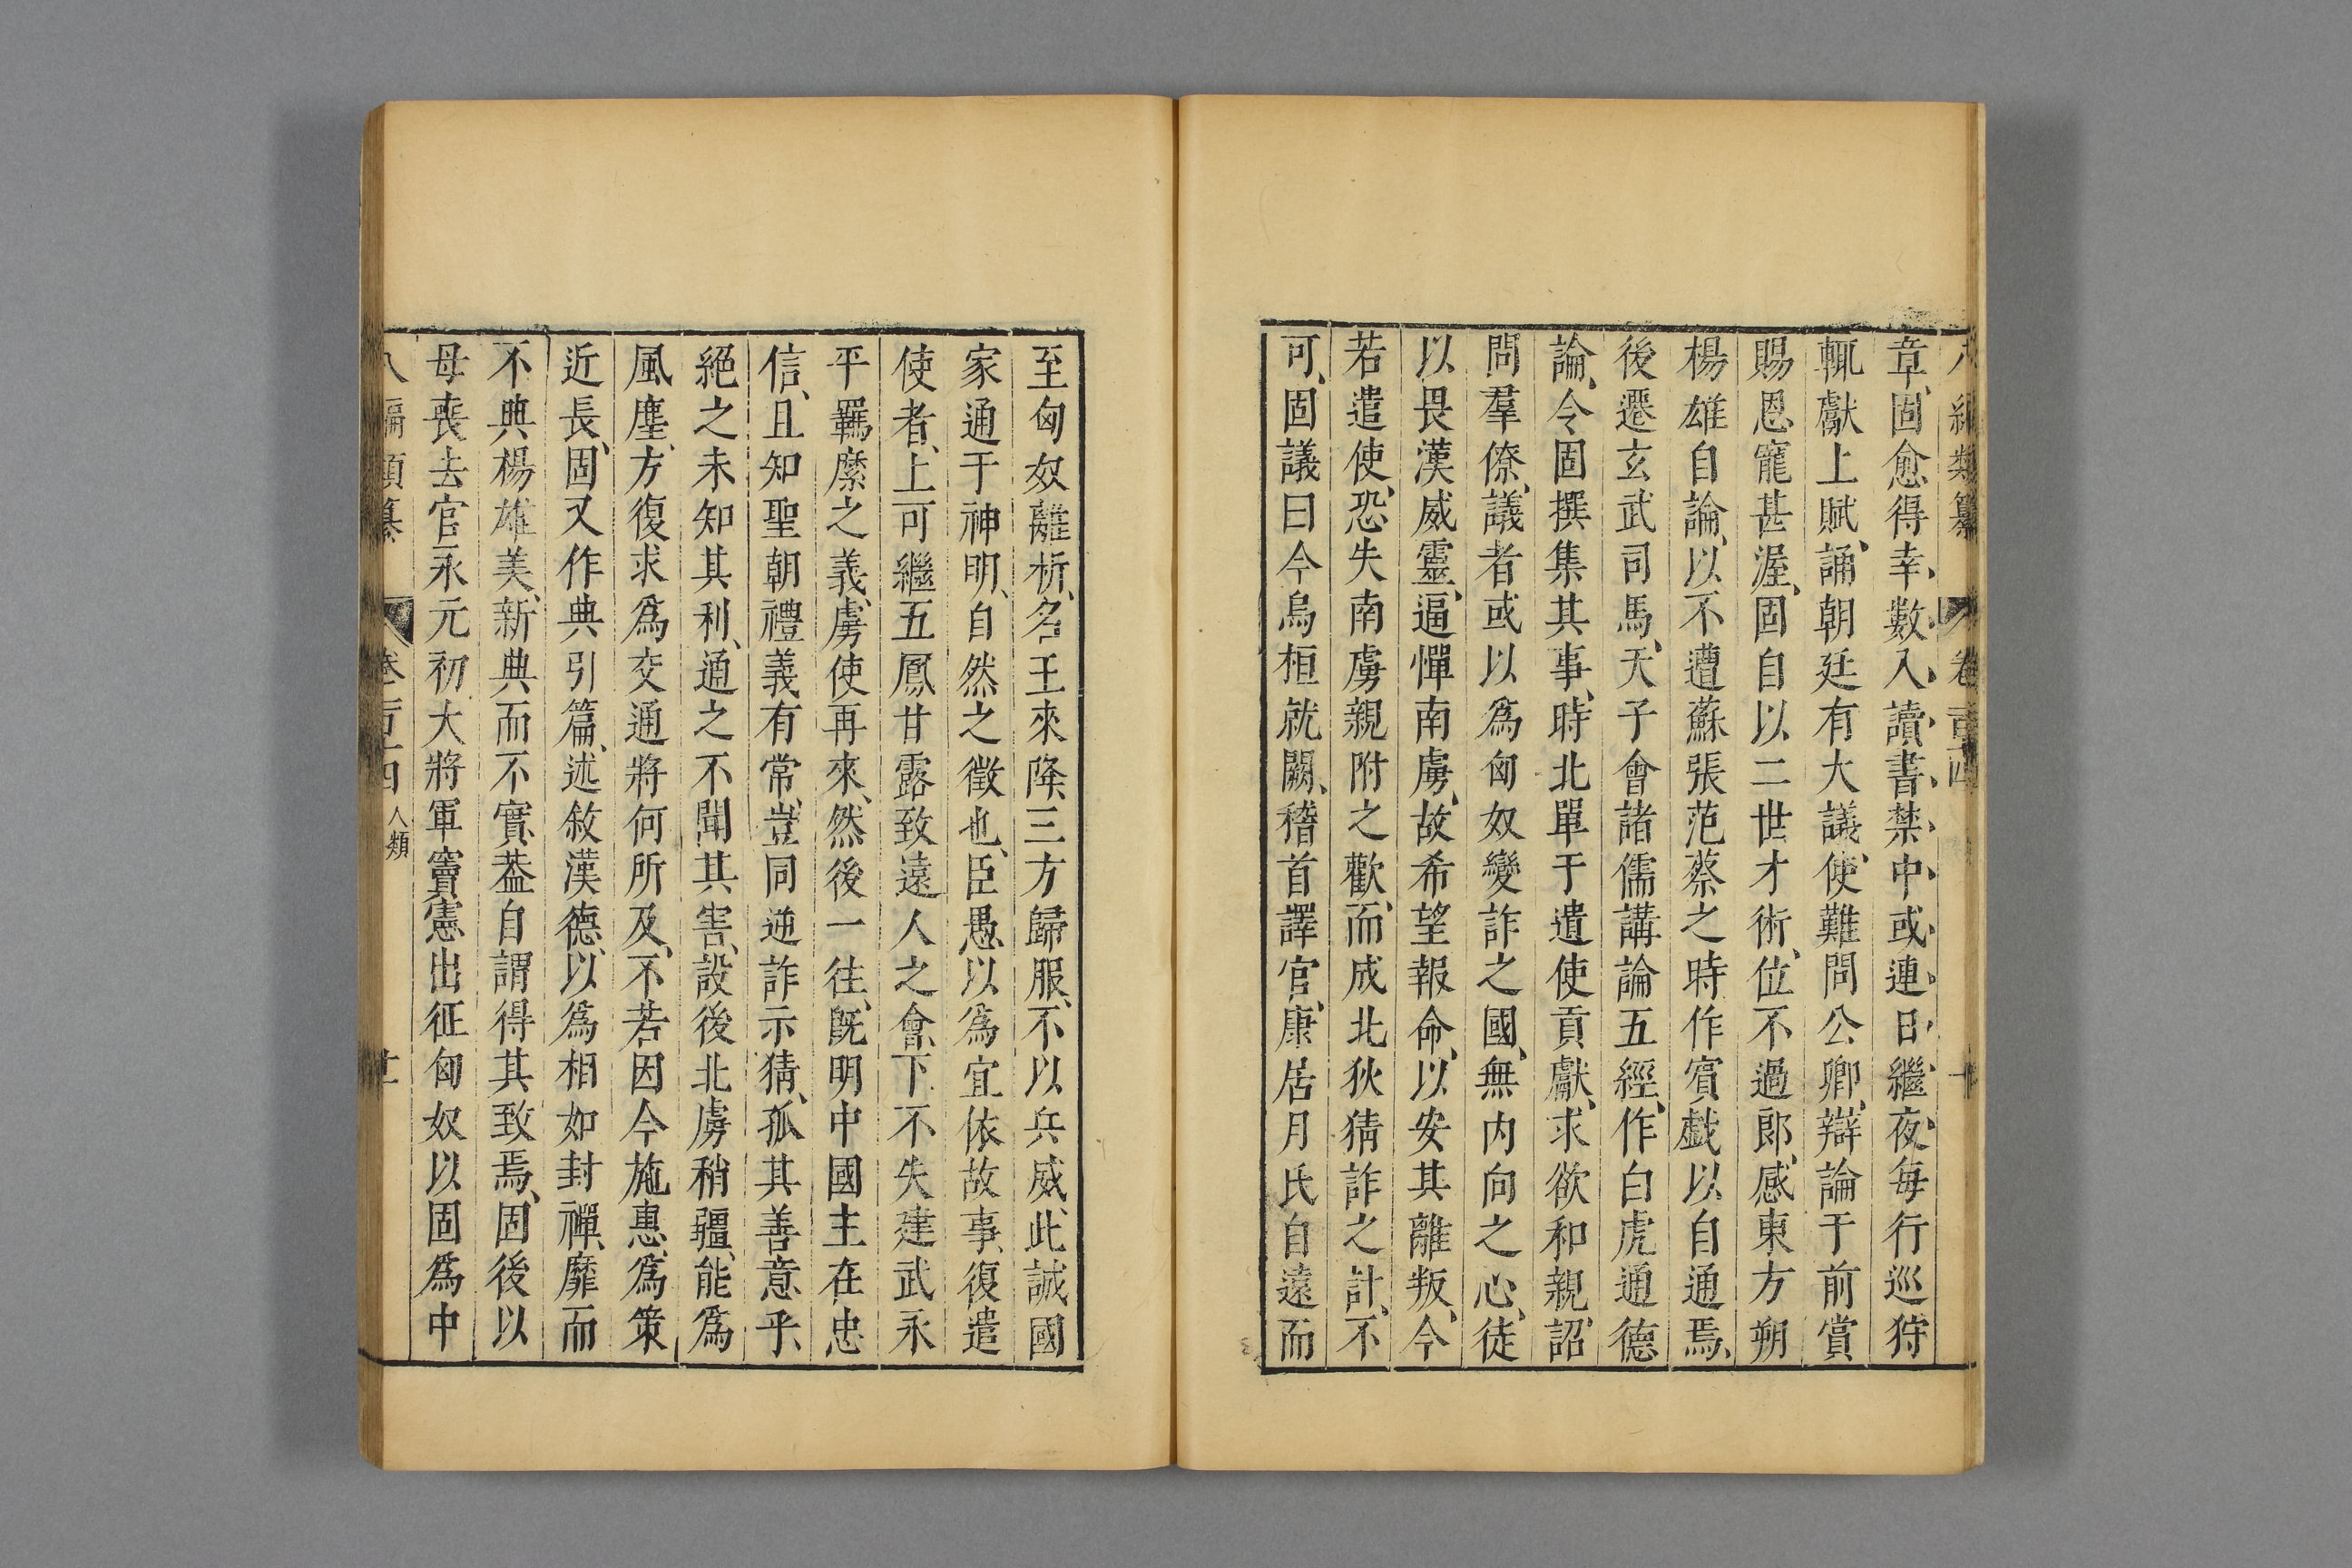 八編類纂 卷一百十四 十
章、固愈得幸、數入讀書禁中、或連日繼夜、每行巡狩
輒獻上賦、誦、朝廷有大議、使難問公卿、辯論于前賞
賜恩寵甚渥、固自以二世才術、位不過郎、感東方朔
楊雄自論、以不遭蘇張范蔡之時作賓戲以自通焉、
後遷玄武司馬、天子會諸儒講論五經、作白虎通德
論、令固撰集其事、時北單于遺使貢獻、求欲和親、詔
問羣僚、議者或以爲匈奴變詐之國、無内向之心、徒
以畏漢威靈、逼憚南虜、故希望報命、以安其離叛、今
若遣使、恐失南虜親附之歡、而成北狄猜詐之計、不
可、固議曰今烏桓就闕、稽首譯官、康居月氏自遠而
至匈奴離析、名王來降三方歸服、不以兵威、此誠國
家通于神明、自然之徵也、臣愚以爲宜依故事、復遣
使者、上可繼五鳳甘露致遠人之會、下不失建武永
平羈縻之義、虜使再來、然後一往、既明中國主在忠
信、且知聖朝禮義有常、豈同逆詐示猜、孤其善意乎、
絕之未知其利、通之不聞其害、設後北虜稍疆、能爲
風塵、方復求爲交通將何所及、不若因今施惠、爲策
近長、固又作典引篇、述敘漢德、以爲相如封禪、靡而
不典楊雄美、新典而不實、葢自謂得其致焉、固後以
母喪去官永元初大將軍竇憲出征匈奴以固爲中
八編類纂 卷一百十四 人類 十一